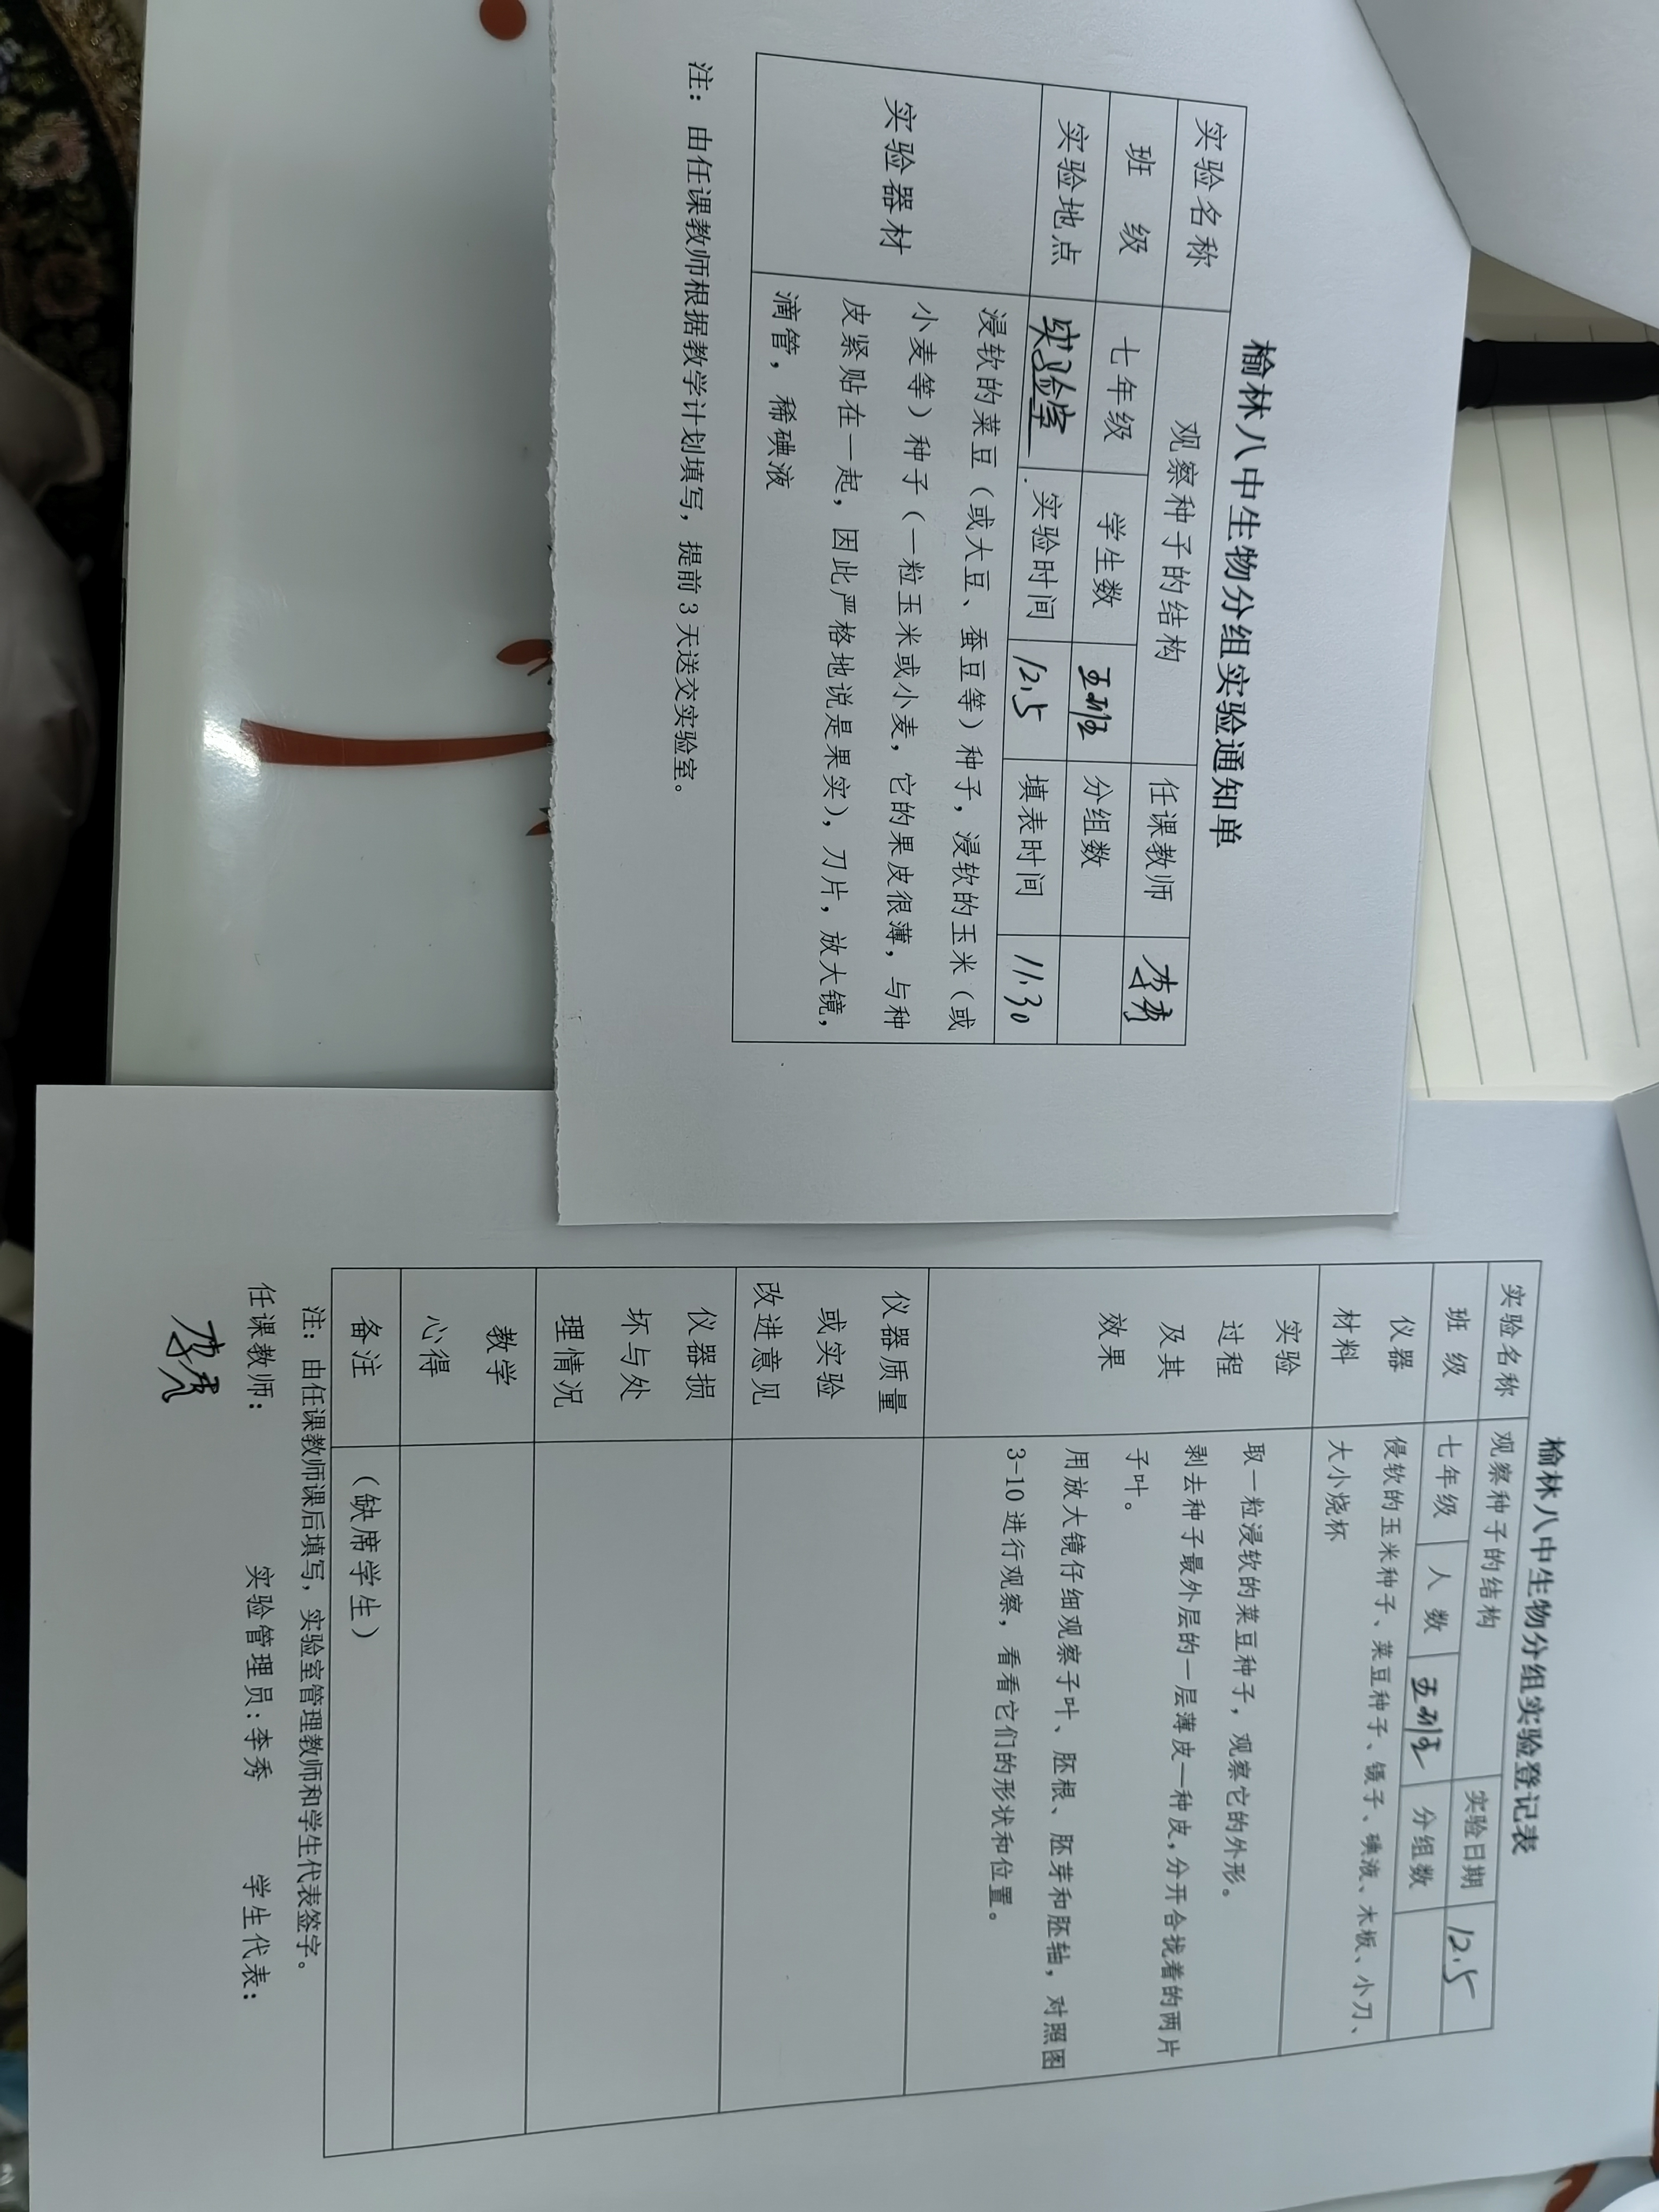 榆林八中生物分组实验通知单
实验名称 观察种子的结构 任课教师 李秀
班 级 七年级 学生数 五班 分组数
实验地点 实验室 实验时间 12.5 填表时间 11.30
实验器材
浸软的菜豆（或大豆、蚕豆等）种子，浸软的玉米（或
小麦等）种子（一粒玉米或小麦，它的果皮很薄，与种
皮紧贴在一起，因此严格地说是果实），刀片，放大镜，
滴管，稀碘液
注： 由任课教师根据教学计划填写，提前 3 天送交实验室。
榆林八中生物分组实验登记表
实验名称 观察种子的结构 实验日期 12.5
班 级 七年级 人 数 五班 分组数
仪器
材料
侵软的玉米种子、菜豆种子、镊子、碘液、木板、小刀、
大小烧杯
实验
过程
及其
效果
取一粒浸软的菜豆种子，观察它的外形。
剥去种子最外层的一层薄皮—种皮，分开合拢着的两片
子叶。
用放大镜仔细观察子叶、胚根、胚芽和胚轴，对照图
3-10 进行观察，看看它们的形状和位置。
仪器质量
或实验
改进意见
仪器损
坏与处
理情况
教学
心得
备注 （缺席学生）
注：由任课教师课后填写，实验室管理教师和学生代表签字。
任课教师： 实验管理员：李秀 学生代表：
李秀